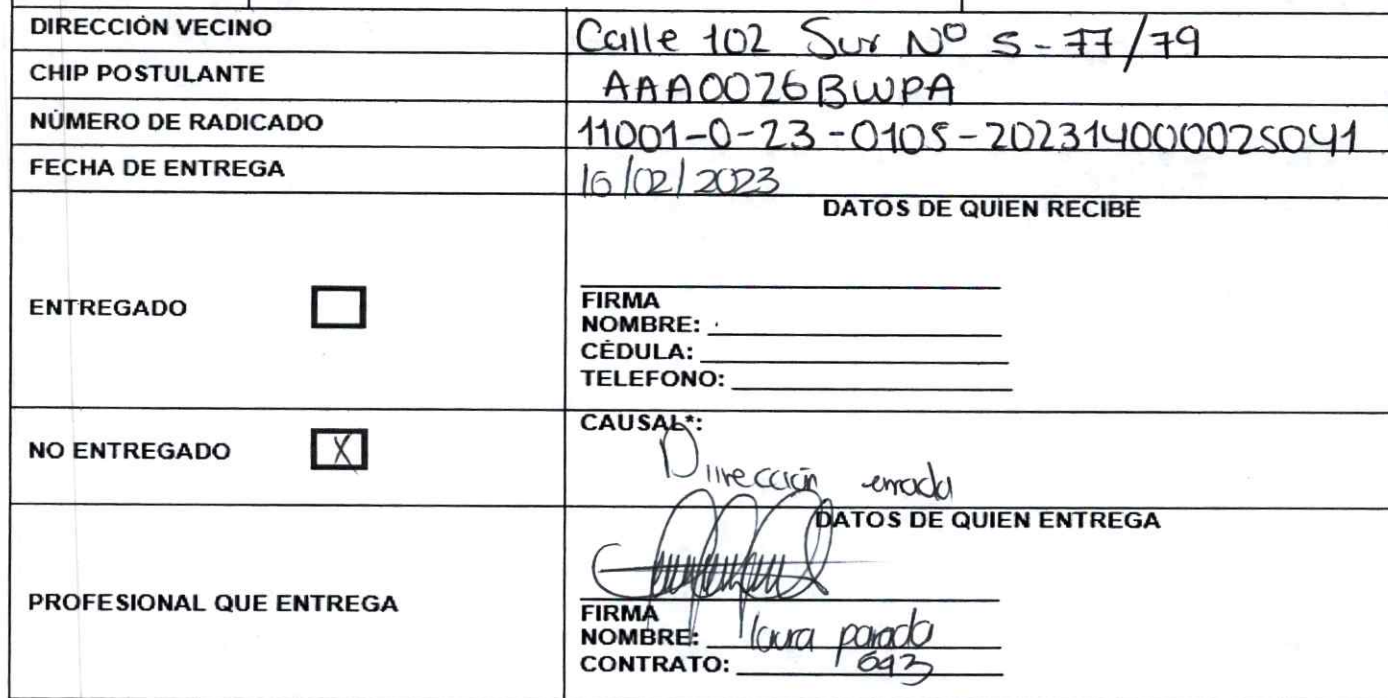 DIRECCIÓN VECINO Calle 102 Sur Nº 5-77/79
CHIP POSTULANTE AAA0026BWPA
NÚMERO DE RADICADO 11001-0-23-0105-20231400025041
FECHA DE ENTREGA 16/02/2023
DATOS DE QUIEN RECIBE
ENTREGADO
FIRMA
NOMBRE:
CÉDULA:
TELEFONO:
CAUSAL*:
NO ENTREGADO X
Dirección errada
DATOS DE QUIEN ENTREGA
PROFESIONAL QUE ENTREGA
FIRMA
NOMBRE: laura parada
CONTRATO: 643